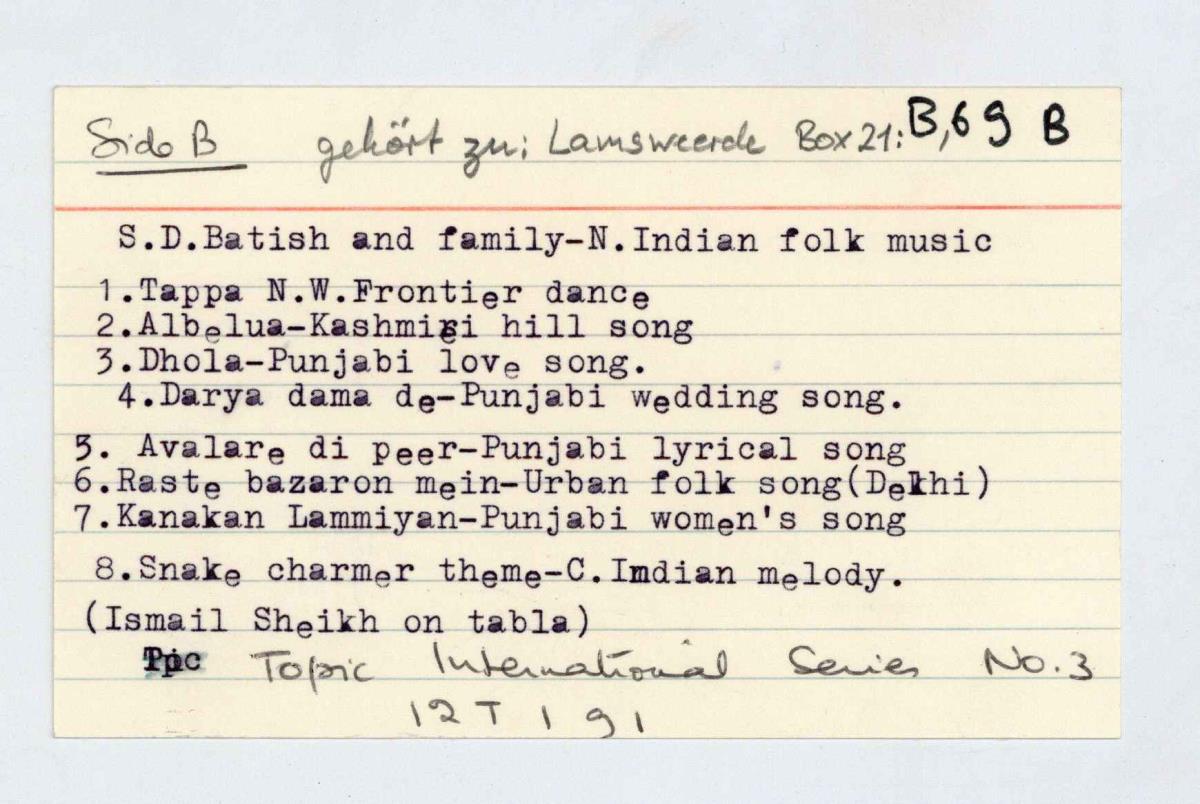 Side B gehört zu: Lamsweerde Box 21: B,69 B
S.D.Batish and family-N.Indian folk music
1.Tappa N.W.Frontier dance
2.Albelua-Kashmiri hill song
3.Dhola-Punjabi love song.
4.Darya dama de-Punjabi wedding song.
5. Avalare di peer-Punjabi lyrical song
6.Raste bazaron mein-Urban folk song(Delhi)
7.Kanakan Lammiyan-Punjabi women's song
8.Snake charmer theme-C.Indian melody.
(Ismail Sheikh on tabla)
Topic International Series No.3
12T191